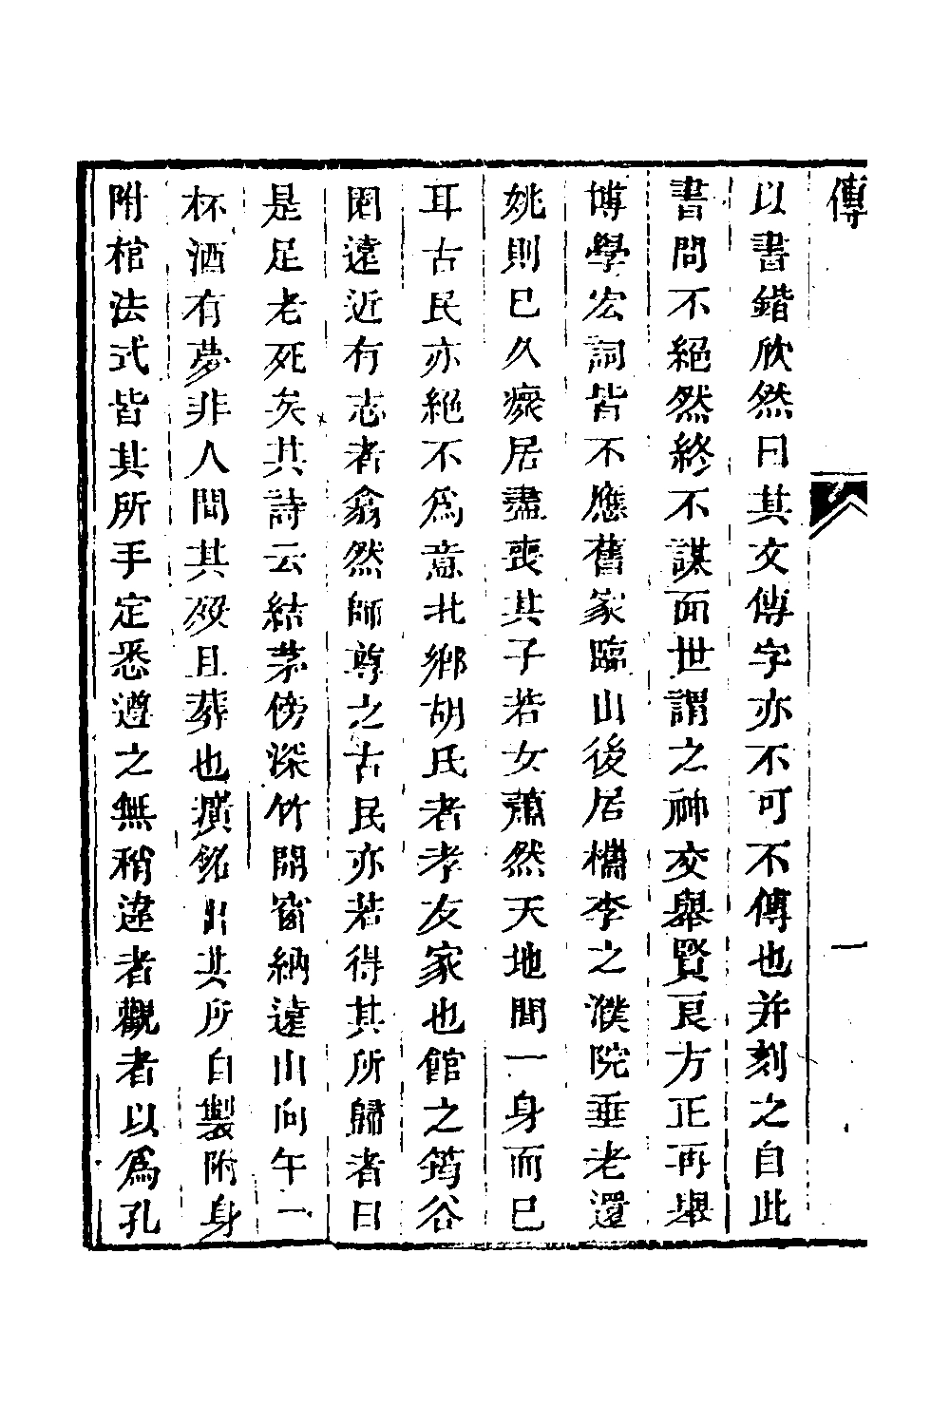 傳
一
以書鍇欣然曰其文傳字亦不可不傳也并刻之自此
書問不絕然終不謀面世謂之神交舉賢良方正再舉
博學宏詞皆不應舊家臨山後居檇李之濮院垂老還
姚則已久瘝居盡喪其子若女蕭然天地間一身而已
耳古民亦絕不爲意北鄉胡氏者孝友家也館之筠谷
園遠近有志者翕然師尊之古民亦若得其所歸者曰
是足老死矣其詩云結茅傍深竹開窗納遠山向午一
杯酒有夢非人間其歿且葬也壙銘出其所自製附身
附棺法式皆其所手定悉遵之無稍違者觀者以爲孔